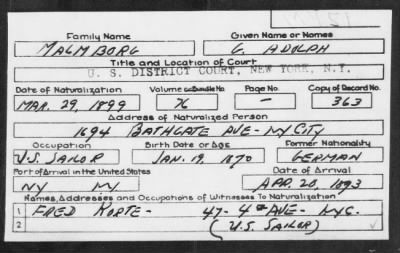 Family Name Given Name or Names
MALMBORG G. ADOLPH
Title and Location of Court
U. S. DISTRICT COURT, NEW YORK, N.Y.
Date of Naturalization Volume or Bundle No. Page No. Copy of Record No.
MAR. 29, 1899 76 — 363
Address of Naturalized Person
1694 BATHGATE AVE - NY CITY
Occupation Birth Date or Age Former Nationality
U.S. SAILOR JAN. 19, 1870 GERMAN
Port of Arrival in the United States Date of Arrival
NY NY APR. 20, 1893
Names, Addresses and Occupations of Witnesses To Naturalization
1 FRED KORTE - 47- 4TH AVE - NYC.
2 (U.S. SAILOR)